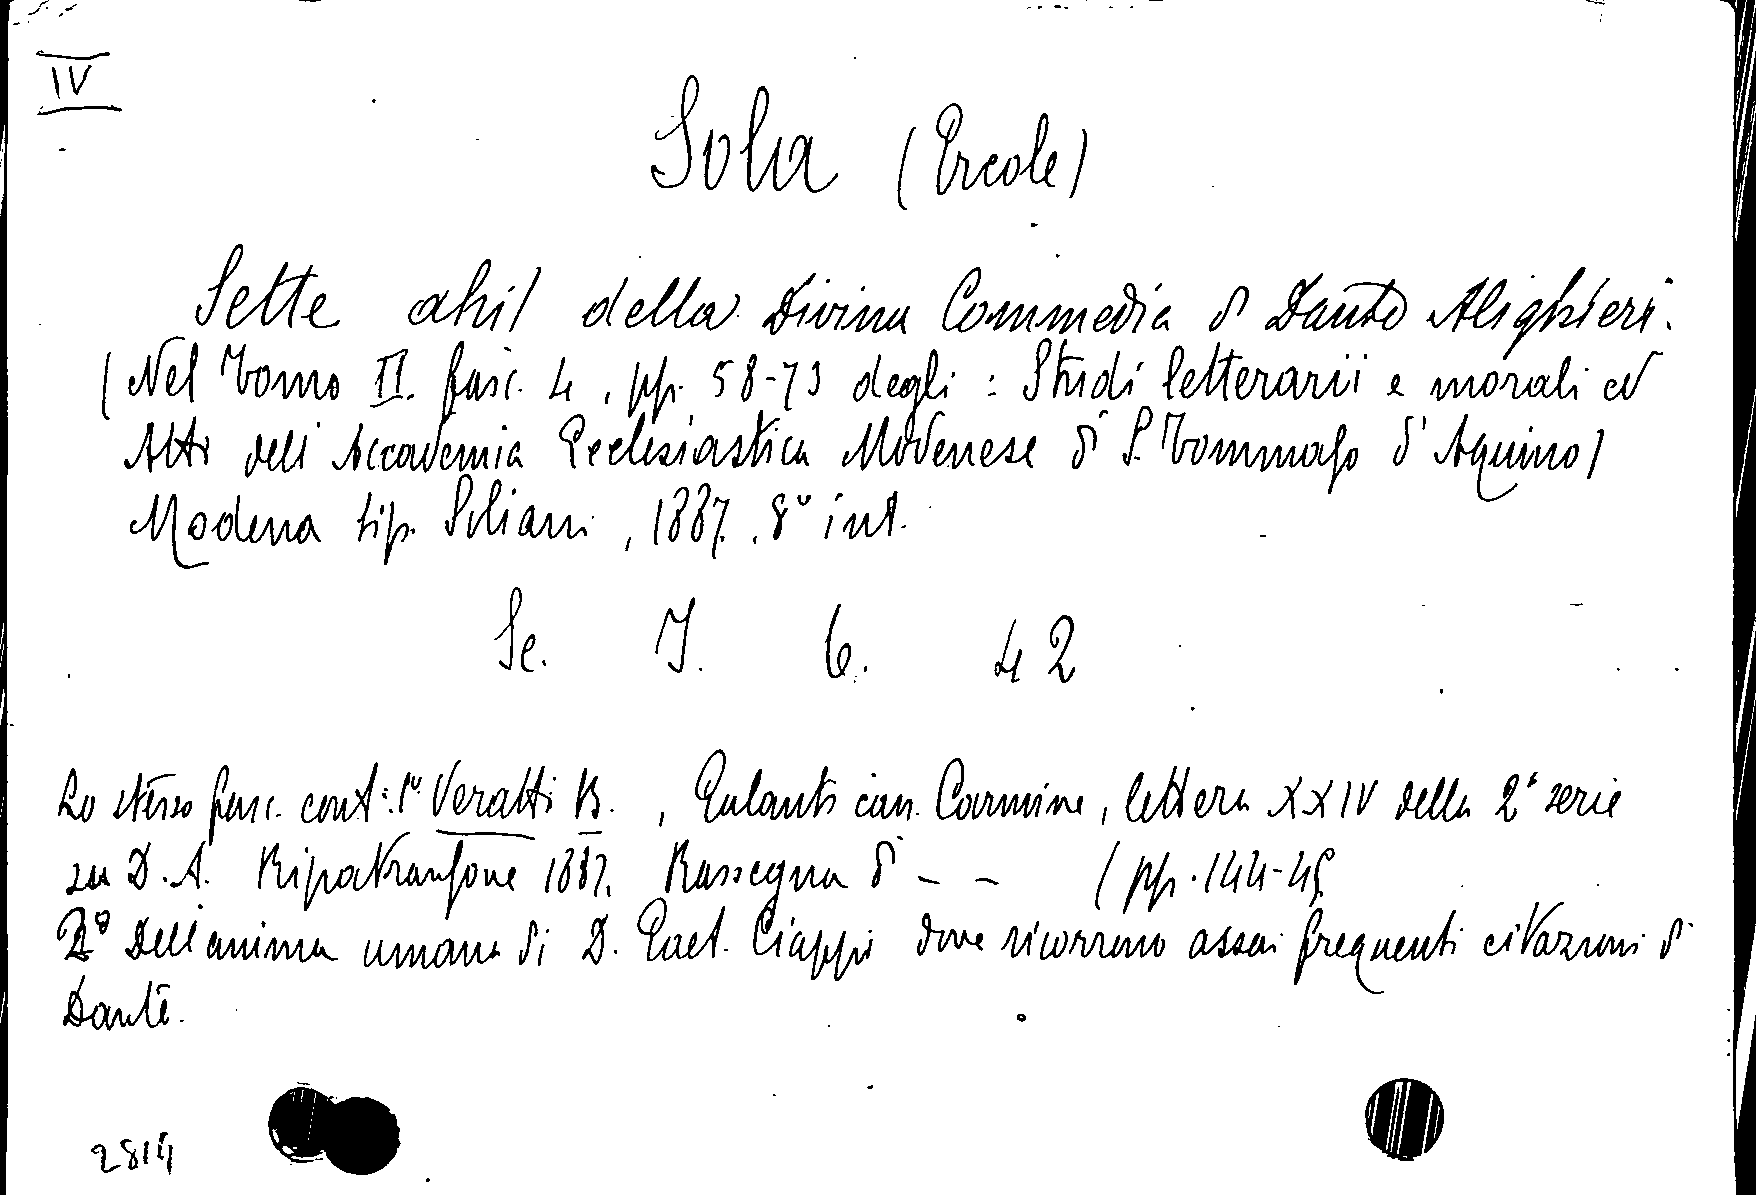 IV
Sola (Ercole)
Sette ahi! della Divina Commedia di Dante Alighieri.
(Nel Tomo II. fasc. 4, pp. 58-73 degli: Studi letterarii e morali ed
Atti dell'Accademia Ecclesiastica Modenese di S. Tommaso d'Aquino)
Modena tip. Soliani, 1887. 8° int.
Se. I. 6. 42
Lo stesso fasc. cont: 1° Veratti B., Galanti can. Carmine, lettera XXIV della 2ª serie
su D. A. Ripatransone 1887. Rassegna di - - (pp. 144-45
2° Dell'anima umana di D. Gaet. Ciappi dove ricorrono assai frequenti citazioni di
Dante.
2814